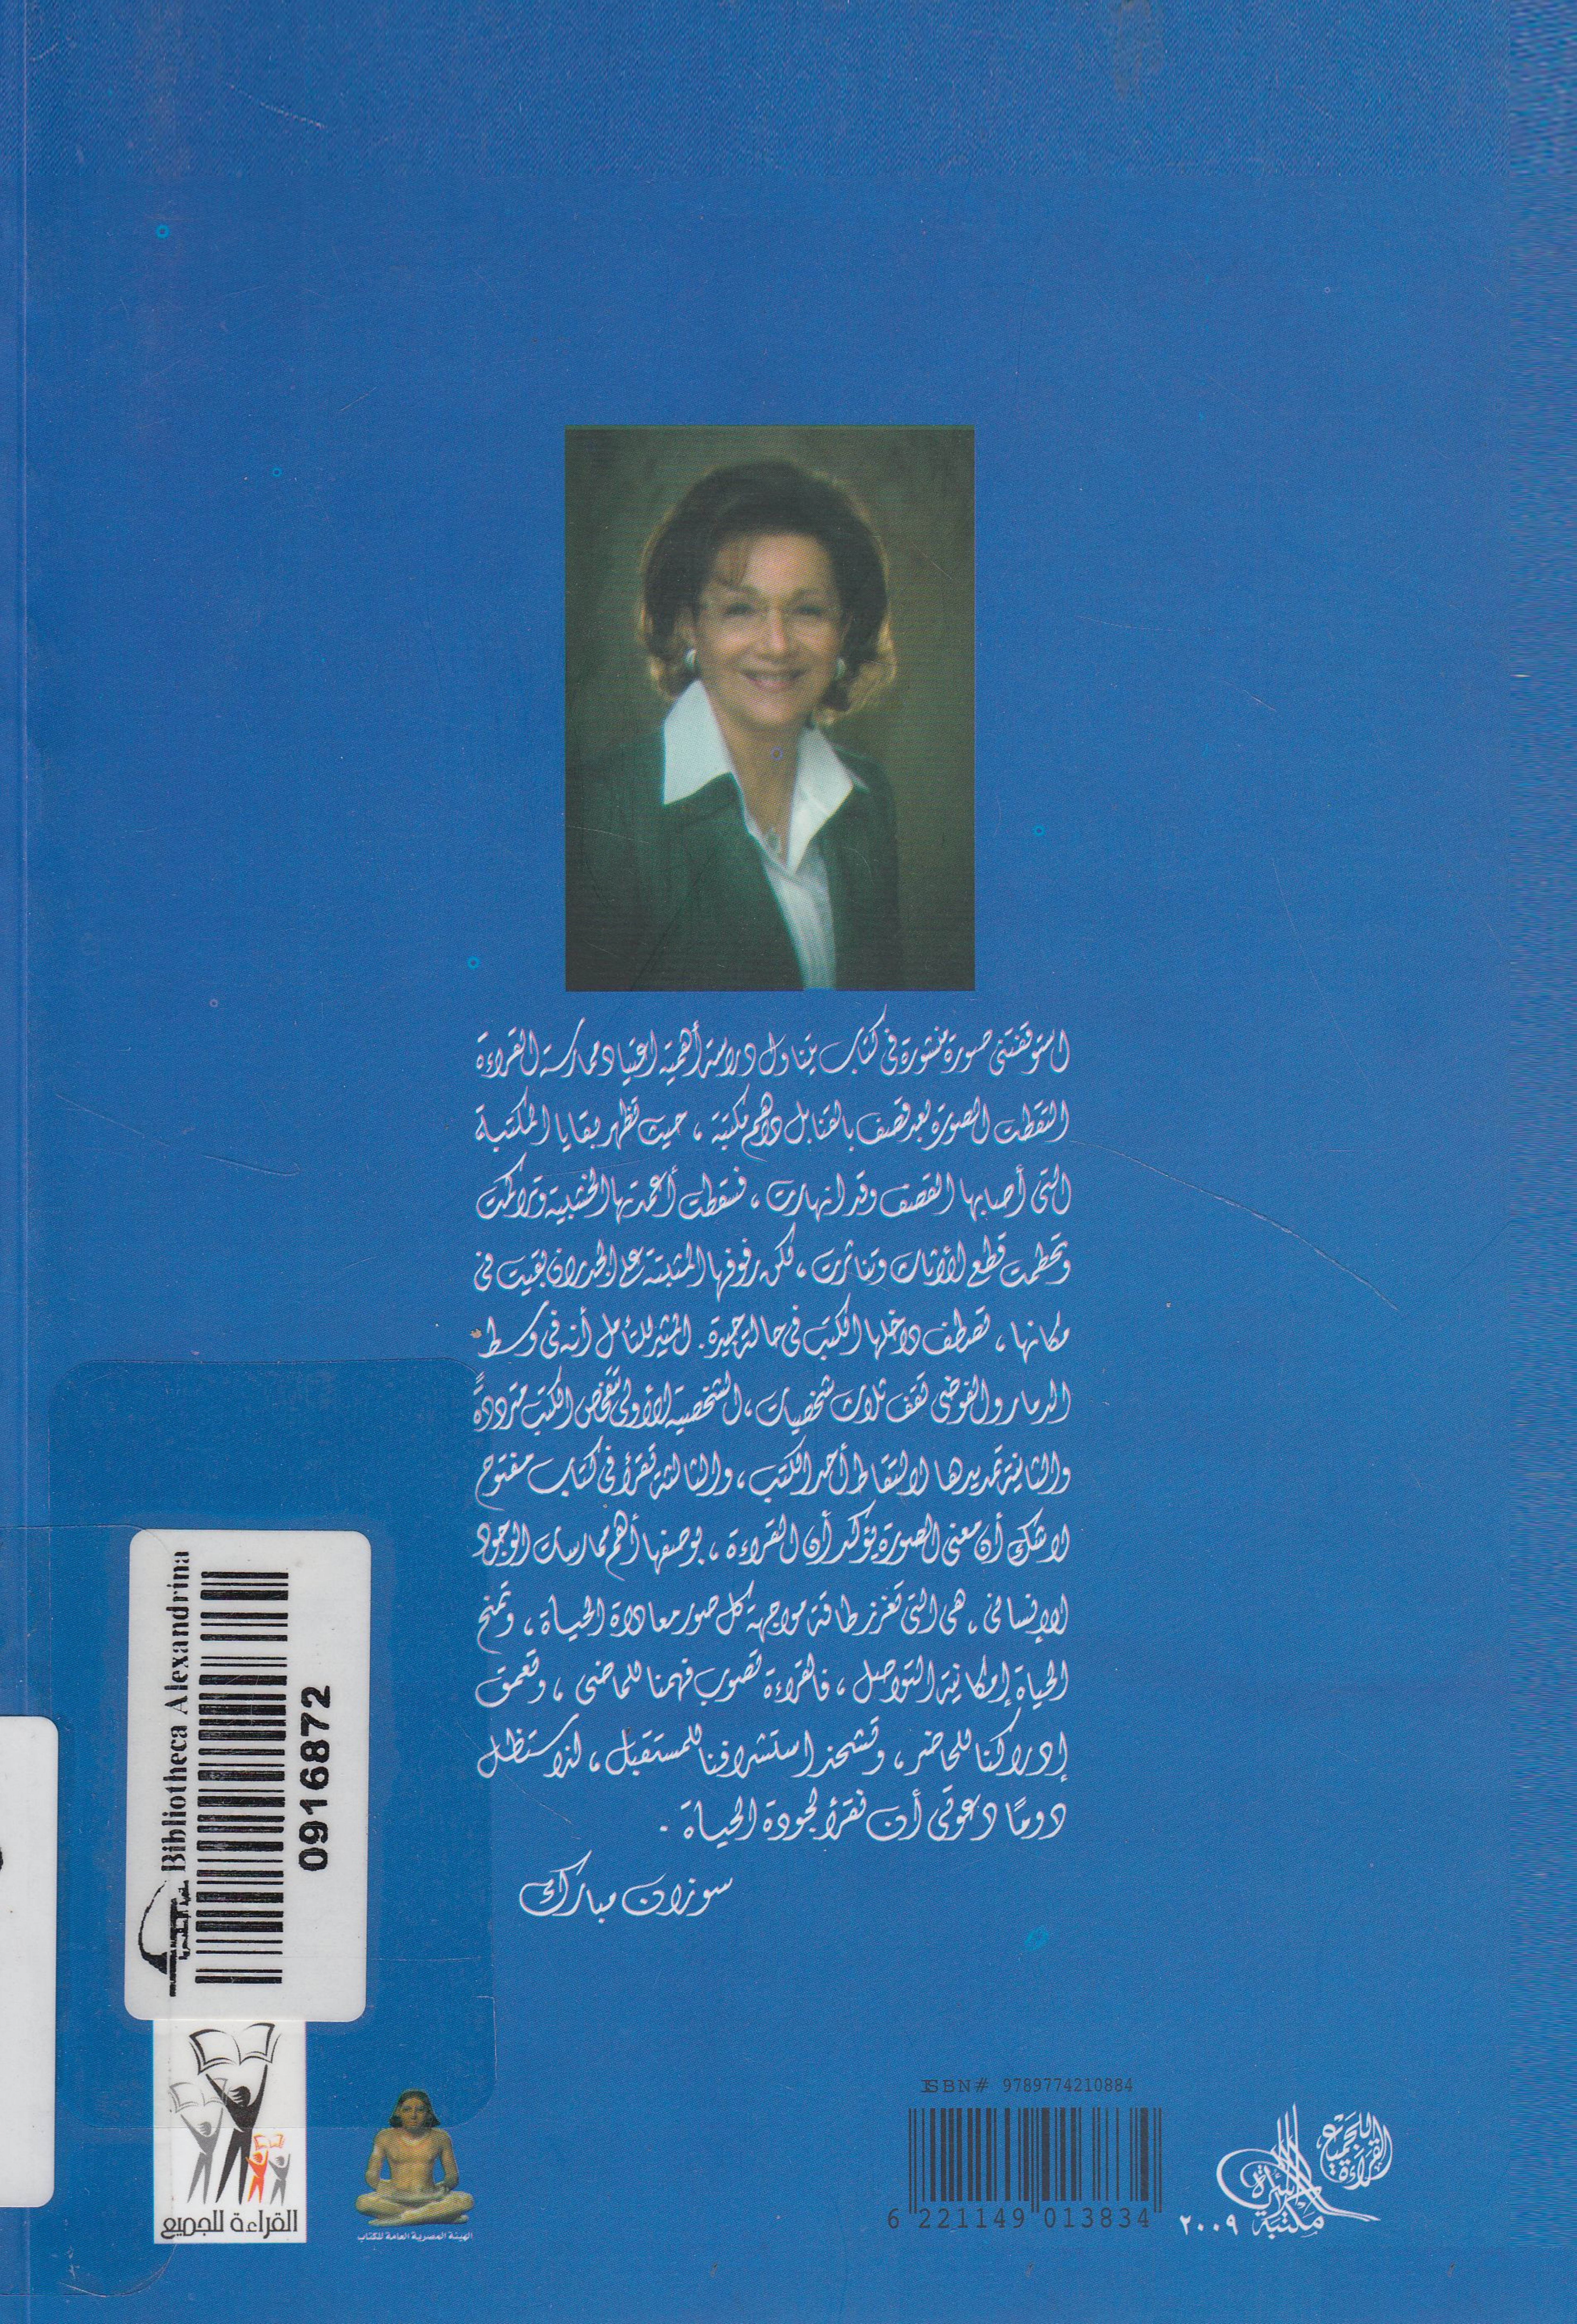 استوقفتنى صورة منشورة فى كتاب يتناول دراسة أهمية اعتياد ممارسة القراءة
التقطت الصورة بعد قصف بالقنابل داهم مكتبة ، حيث تظهر بقايا المكتبة
التى أصابها القصف وقد انهارت ، فسقطت أعمدتها الخشبية وتراكمت
وتحطمت قطع الأثاث وتناثرت ، لكن رفوفها المثبتة على الجدران بقيت فى
مكانها ، تصطف داخلها الكتب فى حالة جيدة . المثير للتأمل أنه فى وسط
الدمار والفوضى تقف ثلاث شخصيات ، الشخصية الأولى تتفحص الكتب مترددةً
والثانية تمد يدها لالتقاط أحد الكتب ، والثالثة تقرأ فى كتاب مفتوح
لاشك أن معنى الصورة يؤكد أن القراءة ، بوصفها أهم ممارسات الوجود
الإنسانى ، هى التى تعزز طاقة مواجهة كل صور معاداة الحياة ، وتمنح
الحياة إمكانية التواصل ، فالقراءة تصوب فهمنا للماضى ، وتعمق
إدراكنا للحاضر ، وتشحذ استشرافنا للمستقبل ، لذا ستظل
دومًا دعوتى أن نقرأ لجودة الحياة .
سوزان مبارك
Bibliotheca Alexandrina
0916872
القراءة للجميع
الهيئة المصرية العامة للكتاب
ISBN# 9789774210884
6 221149 013834
القراءة للجميع
مكتبة الأسرة
٢٠٠٩